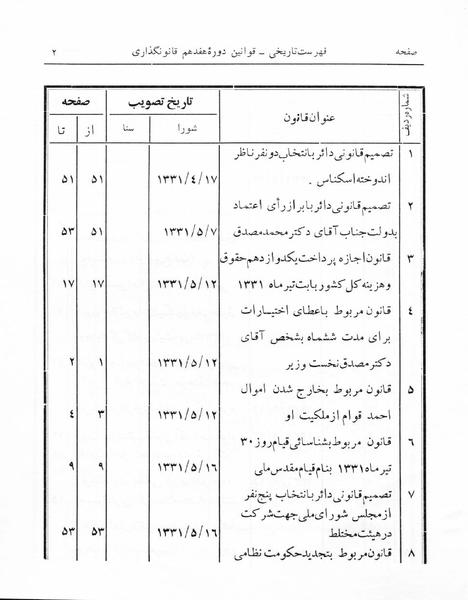 صفحه فهرست تاریخی ـ قوانین دورهٔ هفدهم قانونگذاری ۲
شماره ردیف عنوان قانون تاریخ تصویب صفحه
شورا سنا از تا
۱ تصمیم قانونی دائر بانتخاب دو نفر ناظر
اندوخته اسکناس . ۱۳۳۱/٤/۱۷ ۵۱ ۵۱
۲ تصمیم قانونی دائر بابراز رأی اعتماد
بدولت جناب آقای دکتر محمد مصدق ۱۳۳۱/۵/۷ ۵۱ ۵۳
۳ قانون اجازه پرداخت یکدوازدهم حقوق
و هزینه کل کشور بابت تیر ماه ۱۳۳۱ ۱۳۳۱/۵/۱۲ ۱۷ ۱۷
٤ قانون مربوط باعطای اختیارات
برای مدت ششماه بشخص آقای
دکتر مصدق نخست وزیر ۱۳۳۱/۵/۱۲ ۱ ۲
۵ قانون مربوط بخارج شدن اموال
احمد قوام از ملکیت او ۱۳۳۱/۵/۱۲ ۳ ٤
٦ قانون مربوط بشناسائی قیام روز ۳۰
تیر ماه ۱۳۳۱ بنام قیام مقدس ملی ۱۳۳۱/۵/۱٦ ۹ ۹
۷ تصمیم قانونی دائر بانتخاب پنج نفر
از مجلس شورای ملی جهت شرکت
در هیئت مختلط ۱۳۳۱/۵/۱٦ ۵۳ ۵۳
۸ قانون مربوط بتجدید حکومت نظامی